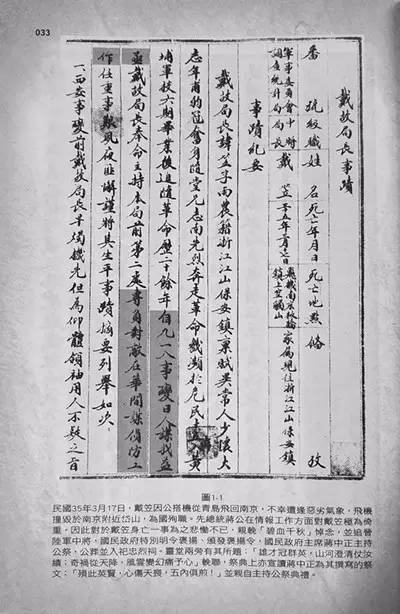 033
戴故局長事蹟
番號級職 姓名 死亡年月日 死亡地點 備 攷
軍事委員會中將
調查統計局局長 戴笠 月 日 飛機南京板橋
鎮上空觸山 家屬現住浙江江山保安鎮
事蹟紀要
戴故局長諱笠字雨農籍浙江江山保安鎮稟賦異常人少懷大
志年甫弱冠奮身隨黨 先烈奔走革命 瀕於危民 黃
埔軍校六期畢業後追隨革命歷二十餘年自九一八事變日人謀我益
亟戴故局長奉命主持本局前第二處專負對敵在華間諜偵防工
作任重事艱夙夜匪懈謹將其生平事蹟摘要列舉如次
一、西安事變前戴故局長早燭機先但為仰體領袖用人不疑之旨
圖1-1
民國35年3月17日，戴笠因公搭機從青島飛回南京，不幸遭逢惡劣氣象，飛機
撞毀於南京附近岱山，為國殉職。先總統蔣公在情報工作方面對戴笠極為倚
重，因此對於戴笠身亡一事為之悲慟不已，親輓「碧血千秋」悼念，並追晉
陸軍中將，國民政府特別明令褒揚、頒發褒揚令，國民政府主席蔣中正主持
公祭，公葬並入祀忠烈祠。靈堂兩旁有其所題：「雄才冠群英，山河澄清仗汝
績；奇禍從天降，風雲變幻痛予心」輓聯，祭典上亦宣讀蔣中正為其撰寫的祭
文：「殞此英賢，心傷天喪，五內俱煎！」並親自主持公祭典禮。